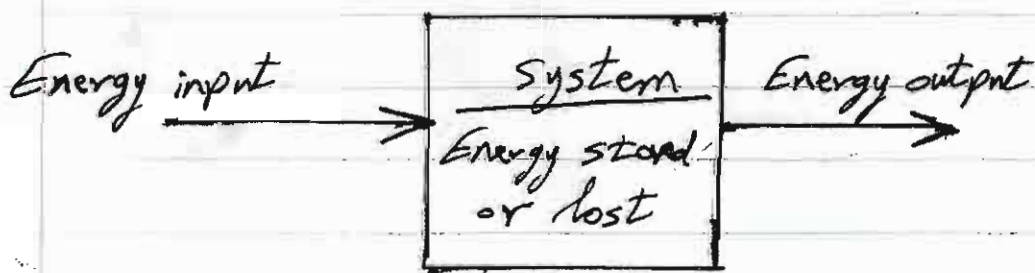 Energy input
System
Energy stored
or lost
Energy output